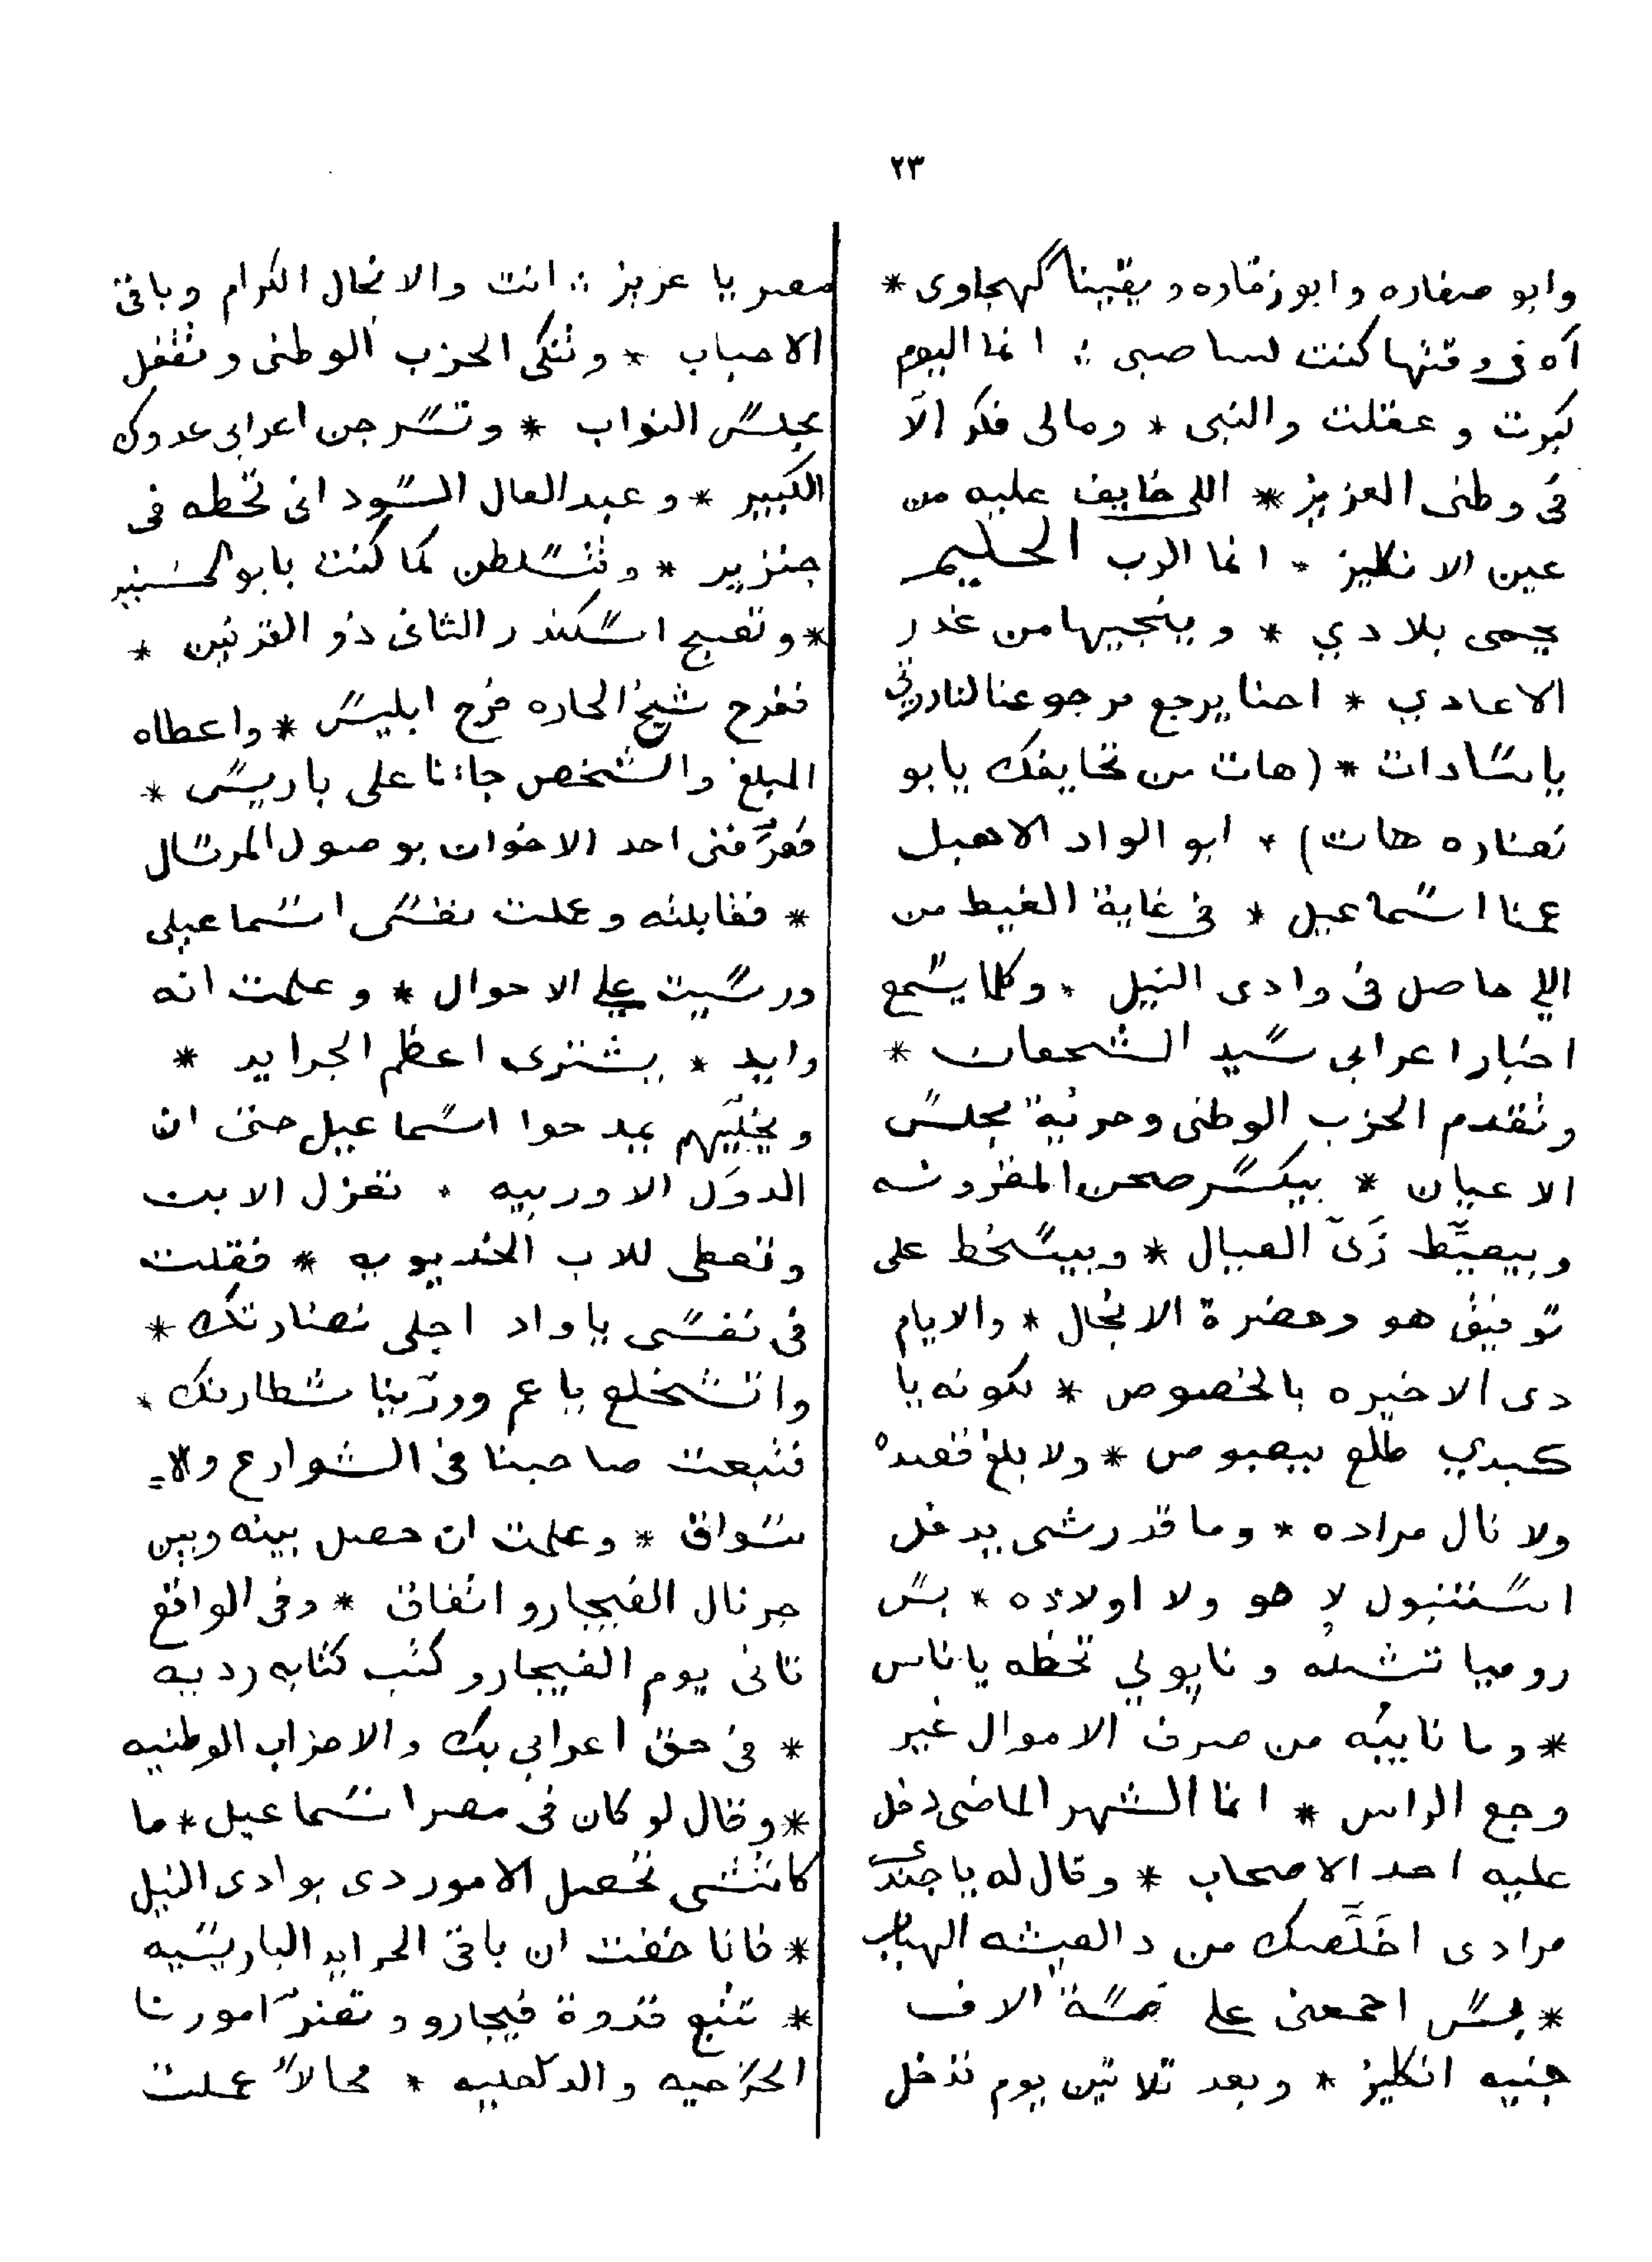 ٢٣
وابو صفاره وابو زقاره و يقينا كهجاوى *
آه فى وقتها كنت لسا صبى ؛ انما اليوم
كبرت و عقلت والنبى * ومالى فكر الّا
فى وطنى العزيز * اللى خايف عليه من
عين الانكليز * انما الرب الحليم
يحمى بلادي * و ينجيها من غدر
الاعادي * احنا يرجع مرجوعنا لنادرتى
ياسادات * (هات من تحايفك يابو
نضاره هات) * ابو الواد الاهبل
عمنا اسماعيل * فى غاية الغيط من
اللي حاصل فى وادى النيل * وكلما يسمع
اخبار اعرابى سيد الشجعان *
وتقدم الحزب الوطنى وحرية مجلس
الاعيان * بيكسر صحن المفروشه
وبيعيّط زَىّ العيال * وبيسخط على
توفيق هو وحضرة الانجال * والايام
دى الاخيره بالخصوص * لكونه يا
كبدي طلع بيعبوص * ولا بلغ قصده
ولا نال مراده * وما قدرشى يدخل
استنبول لا هو ولا اولاده * بس
روميا تشيله و نابولي تحطه ياناس
* وما نايبه من صرف الاموال غير
وجع الراس * انما الشهر الماضى دخل
عليه احد الاصحاب * وقال له يا جندى
مرادى اخَلَّصك من دالعيشه الهباب
* بس احمعنى علي خمسة الاف
جنيه انكليز * وبعد تلاتين يوم تدخل
مصر يا عزيز ؛ انت والانجال الكرام وباقى
الاحباب * وتنكى الحزب الوطنى وتقفل
مجلس النواب * وتسرجن اعرابى عدوك
الكبير * و عبدالعال السودانى تحطه فى
جنزير * وتتسلطن كما كنت يابو الحسنين
* وتصبح اسكندر الثانى ذو القرنين *
ففرح شيخ الحاره فرح ابليس * واعطاه
المبلغ والشخص جاءنا على باريس *
فعرّفنى احد الاخوان بوصول المرسال
* فقابلته وعملت نفسى اسماعيلى
ورسيت علي الاحوال * وعلمت انه
رايد * يشترى اعظم الجرايد *
ويخلّيهم يمدحوا اسماعيل حتى ان
الدوَل الاوربيه * تعزل الابن
وتعطى للاب الخديويه * فقلت
فى نفسى ياواد اجلى نضارتك *
واتشخلع يا عم وورّينا شطارتك *
فتبعت صاحبنا فى الشوارع والا=
سواق * وعلمت ان حصل بينه وبين
جرنال الفيجارو اتفاق * وفى الواقع
تانى يوم الفيجارو كتب كتابه رديه
* فى حق اعرابى بك والاحزاب الوطنيه
* وقال لو كان فى مصر اسماعيل * ما
كانتشى تحصل الامور دى بوادى النيل
* فانا خفت ان باقى الجرايد الباريسيه
* تتبع قدوة فيجارو و تضرّ امورنا
الخارجيه والداخليه * محالاً عملت